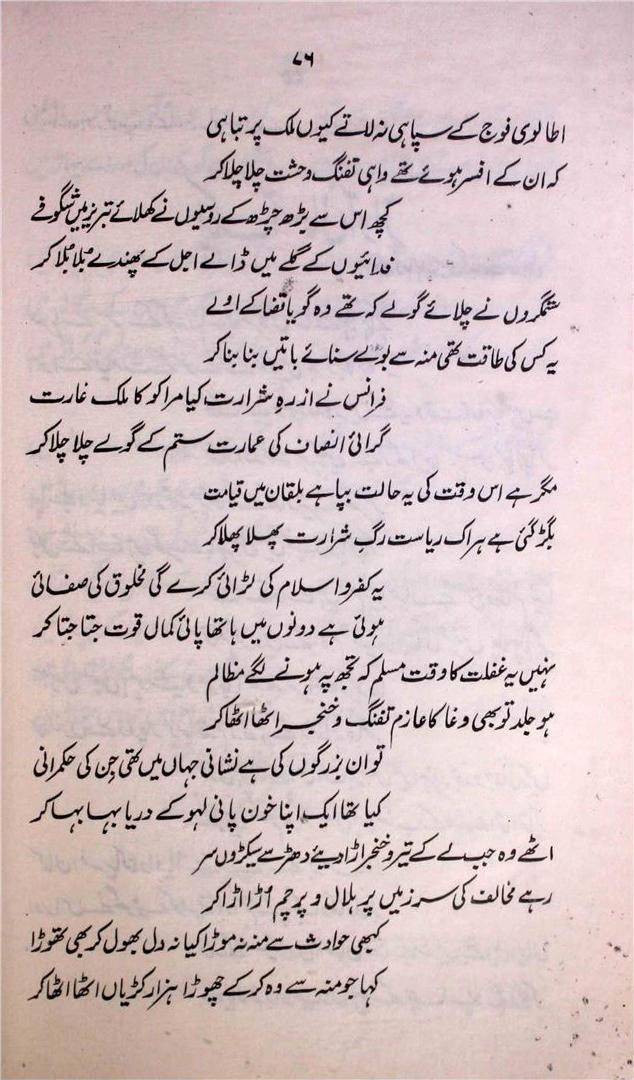 ۷۶
اطالوی فوج کے سپاہی نہ لاتے کیوں ملک پر تباہی
کہ ان کے افسر ہوئے تھے واہی تفنگ وحشت چلا چلا کر
کچھ اس سے بڑھ چڑھ کے روسیوں نے کھلائے تبریز میں شگوفے
فدائیوں کے گلے میں ڈالے اجل کے پھندے بُلا بُلا کر
ستمگروں نے چلائے گولے کہ تھے وہ گویا قضا کے اولے
یہ کس کی طاقت تھی منہ سے بولے سنائے باتیں بنا بنا کر
فرانس نے از رہِ شرارت کیا مراکو کا ملک غارت
گرائی انصاف کی عمارت ستم کے گولے چلا چلا کر
مگر ہے اس وقت کی یہ حالت بپا ہے بلقان میں قیامت
بگڑ گئی ہے ہر اک ریاست رگِ شرارت پھلا پھلا کر
یہ کفر و اسلام کی لڑائی کرے گی مخلوق کی صفائی
ہوئی ہے دونوں میں ہاتھا پائی کمال قوت جتا جتا کر
نہیں یہ غفلت کا وقت مسلم کہ تجھ پہ ہونے لگے مظالم
ہو جلد تو بھی وغا کا عازم تفنگ و خنجر اٹھا اٹھا کر
تو ان بزرگوں کی ہے نشانی جہاں میں تھی جن کی حکمرانی
کیا تھا ایک اپنا خون پانی لہو کے دریا بہا بہا کر
اٹھے وہ جب لے کے تیر و خنجر اڑا دیئے دھڑ سے سیکڑوں سر
رہے مخالف کی سرزمیں پر ہلال و پرچم اُڑا اڑا کر
کبھی حوادث سے منہ نہ موڑا کیا نہ دل بھول کر بھی تھوڑا
کہا جو منہ سے وہ کر کے چھوڑا ہزار کڑیاں اٹھا اٹھا کر